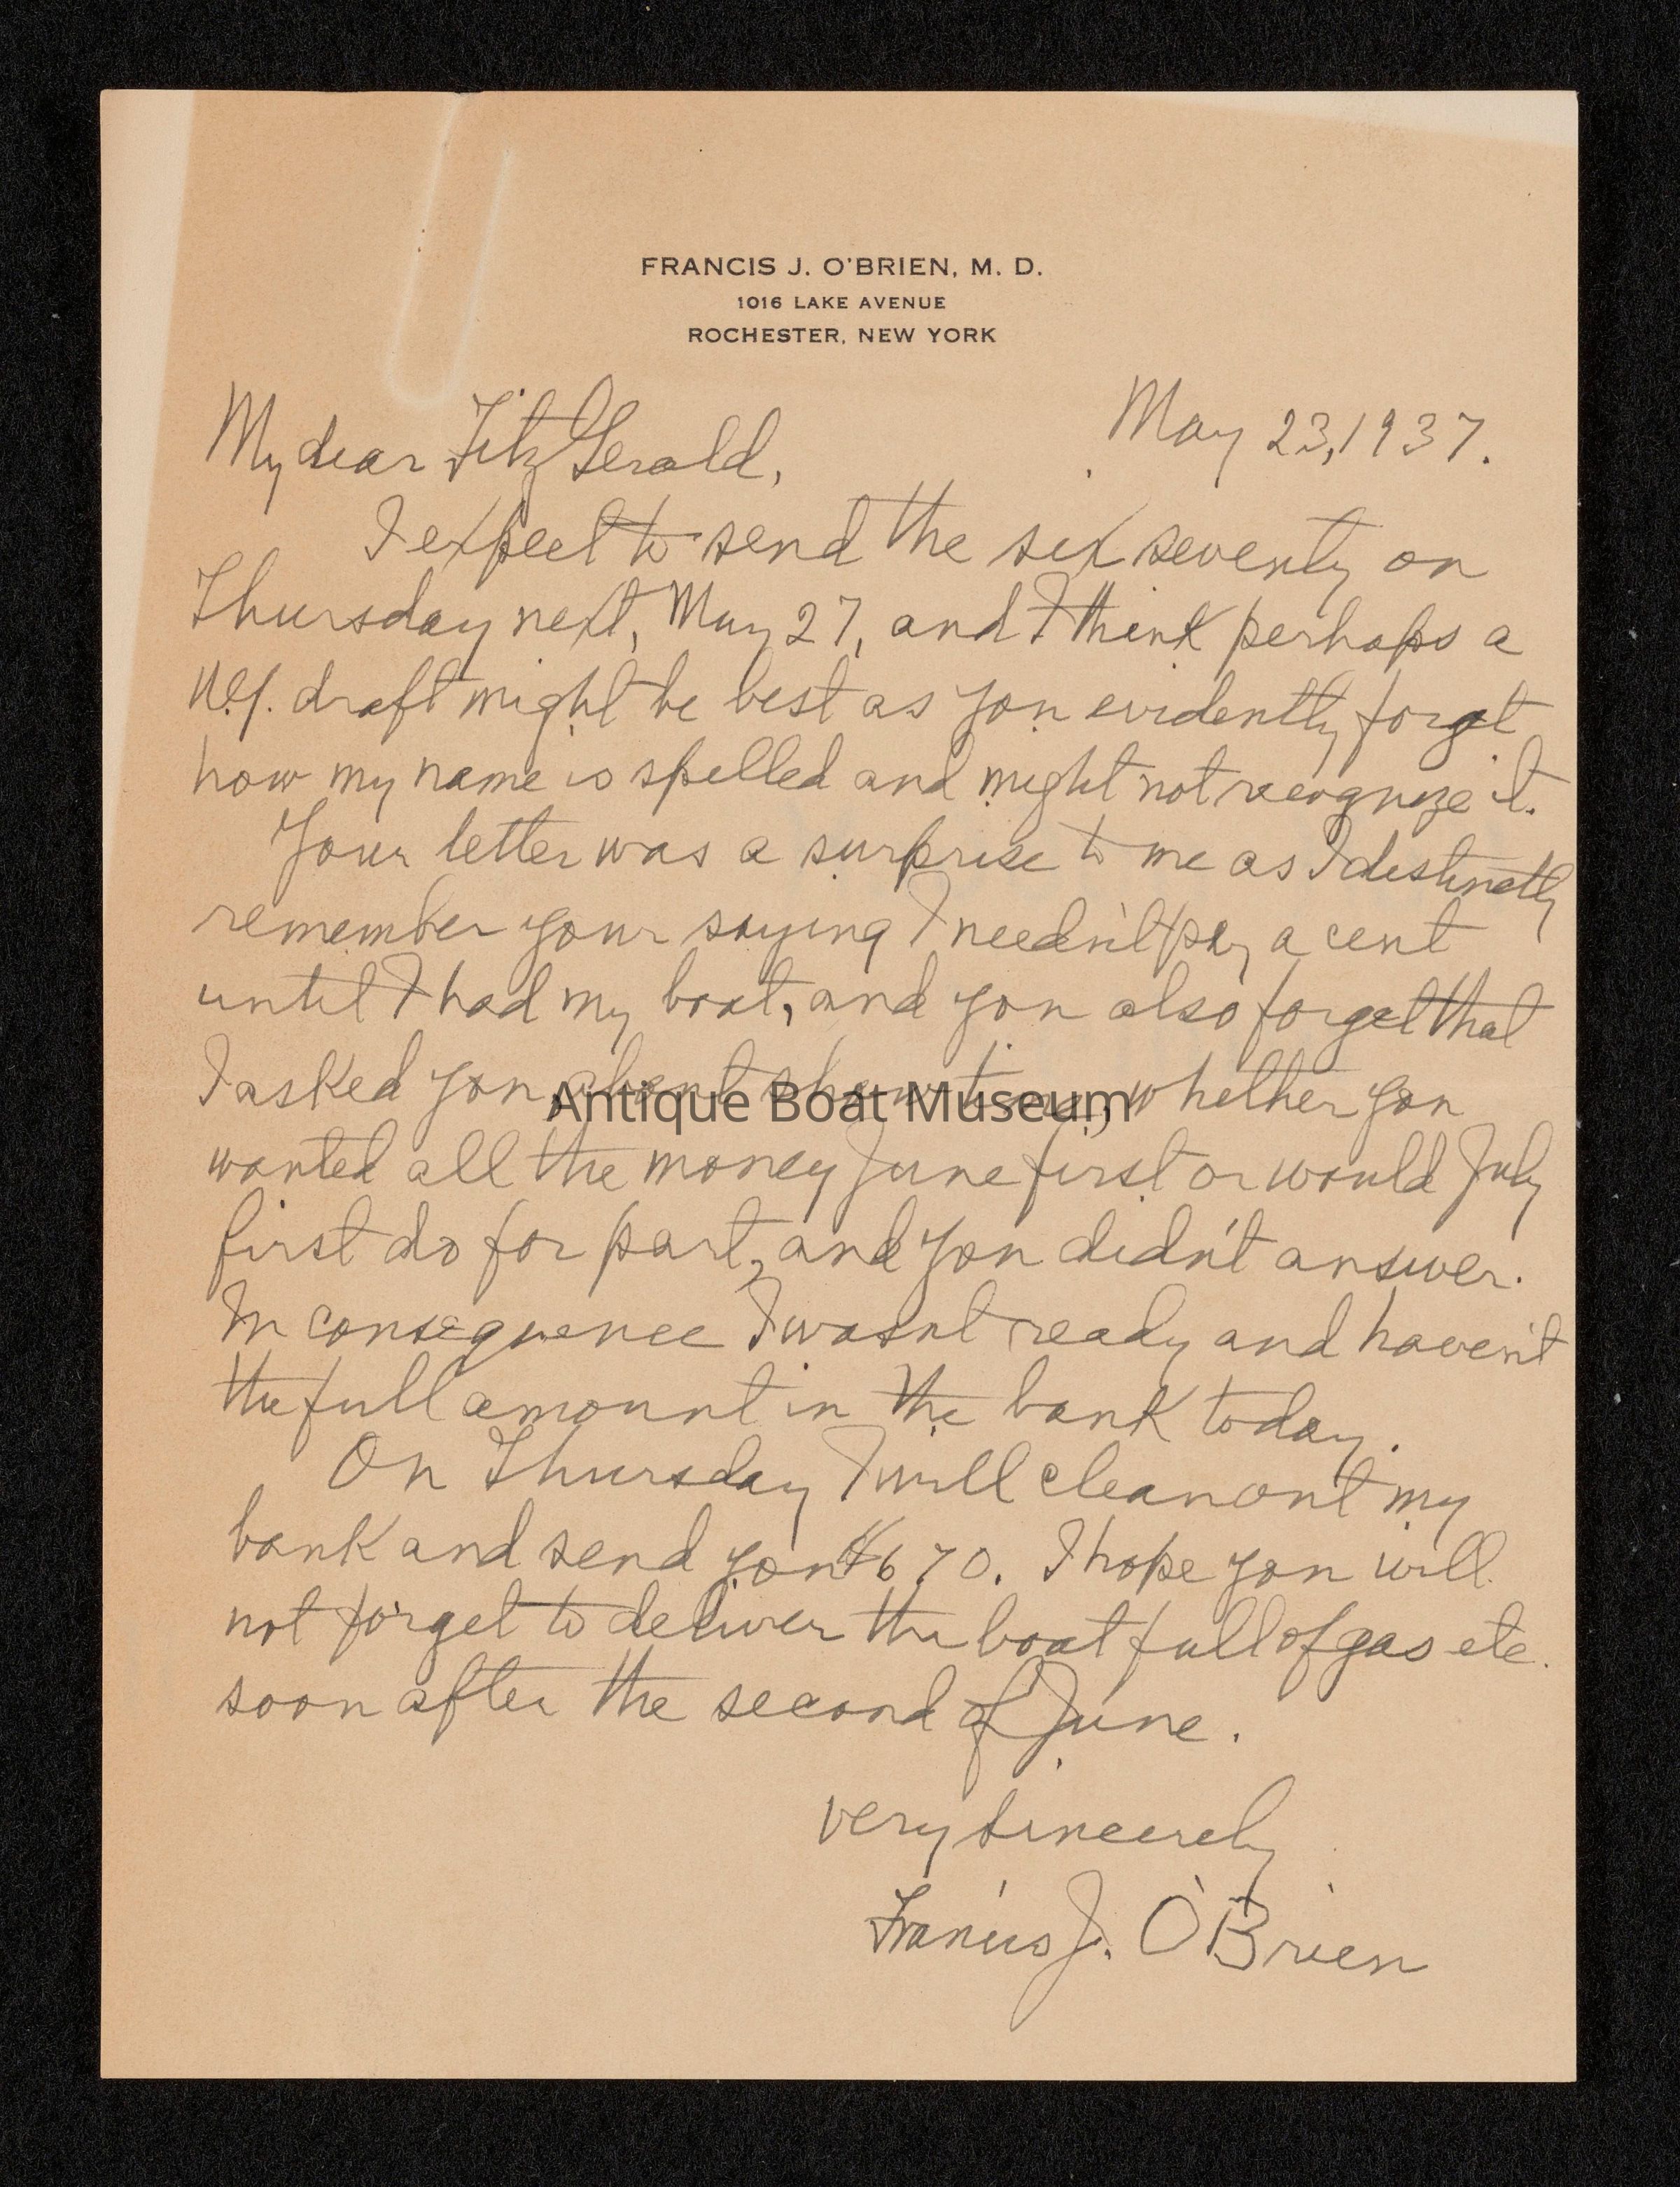 FRANCIS J. O'BRIEN, M. D.
1016 LAKE AVENUE
ROCHESTER, NEW YORK
May 23, 1937.
My dear FitzGerald,
I expect to send the six seventy on
Thursday next, May 27, and I think perhaps a
N.Y. draft might be best as you evidently forget
how my name is spelled and might not recognize it.
Your letter was a surprise to me as I distinctly
remember your saying I needn't pay a cent
until I had my boat, and you also forget that
I asked you, about whether you
Antique Boat Museum
wanted all the money June first or would July
first do for part, and you didn't answer.
In consequence I wasnt ready and haven't
the full amount in the bank today.
On Thursday I will clean out my
bank and send you $670. I hope you will
not forget to deliver the boat full of gas etc.
soon after the second of June.
very sincerely
Francis J. O'Brien